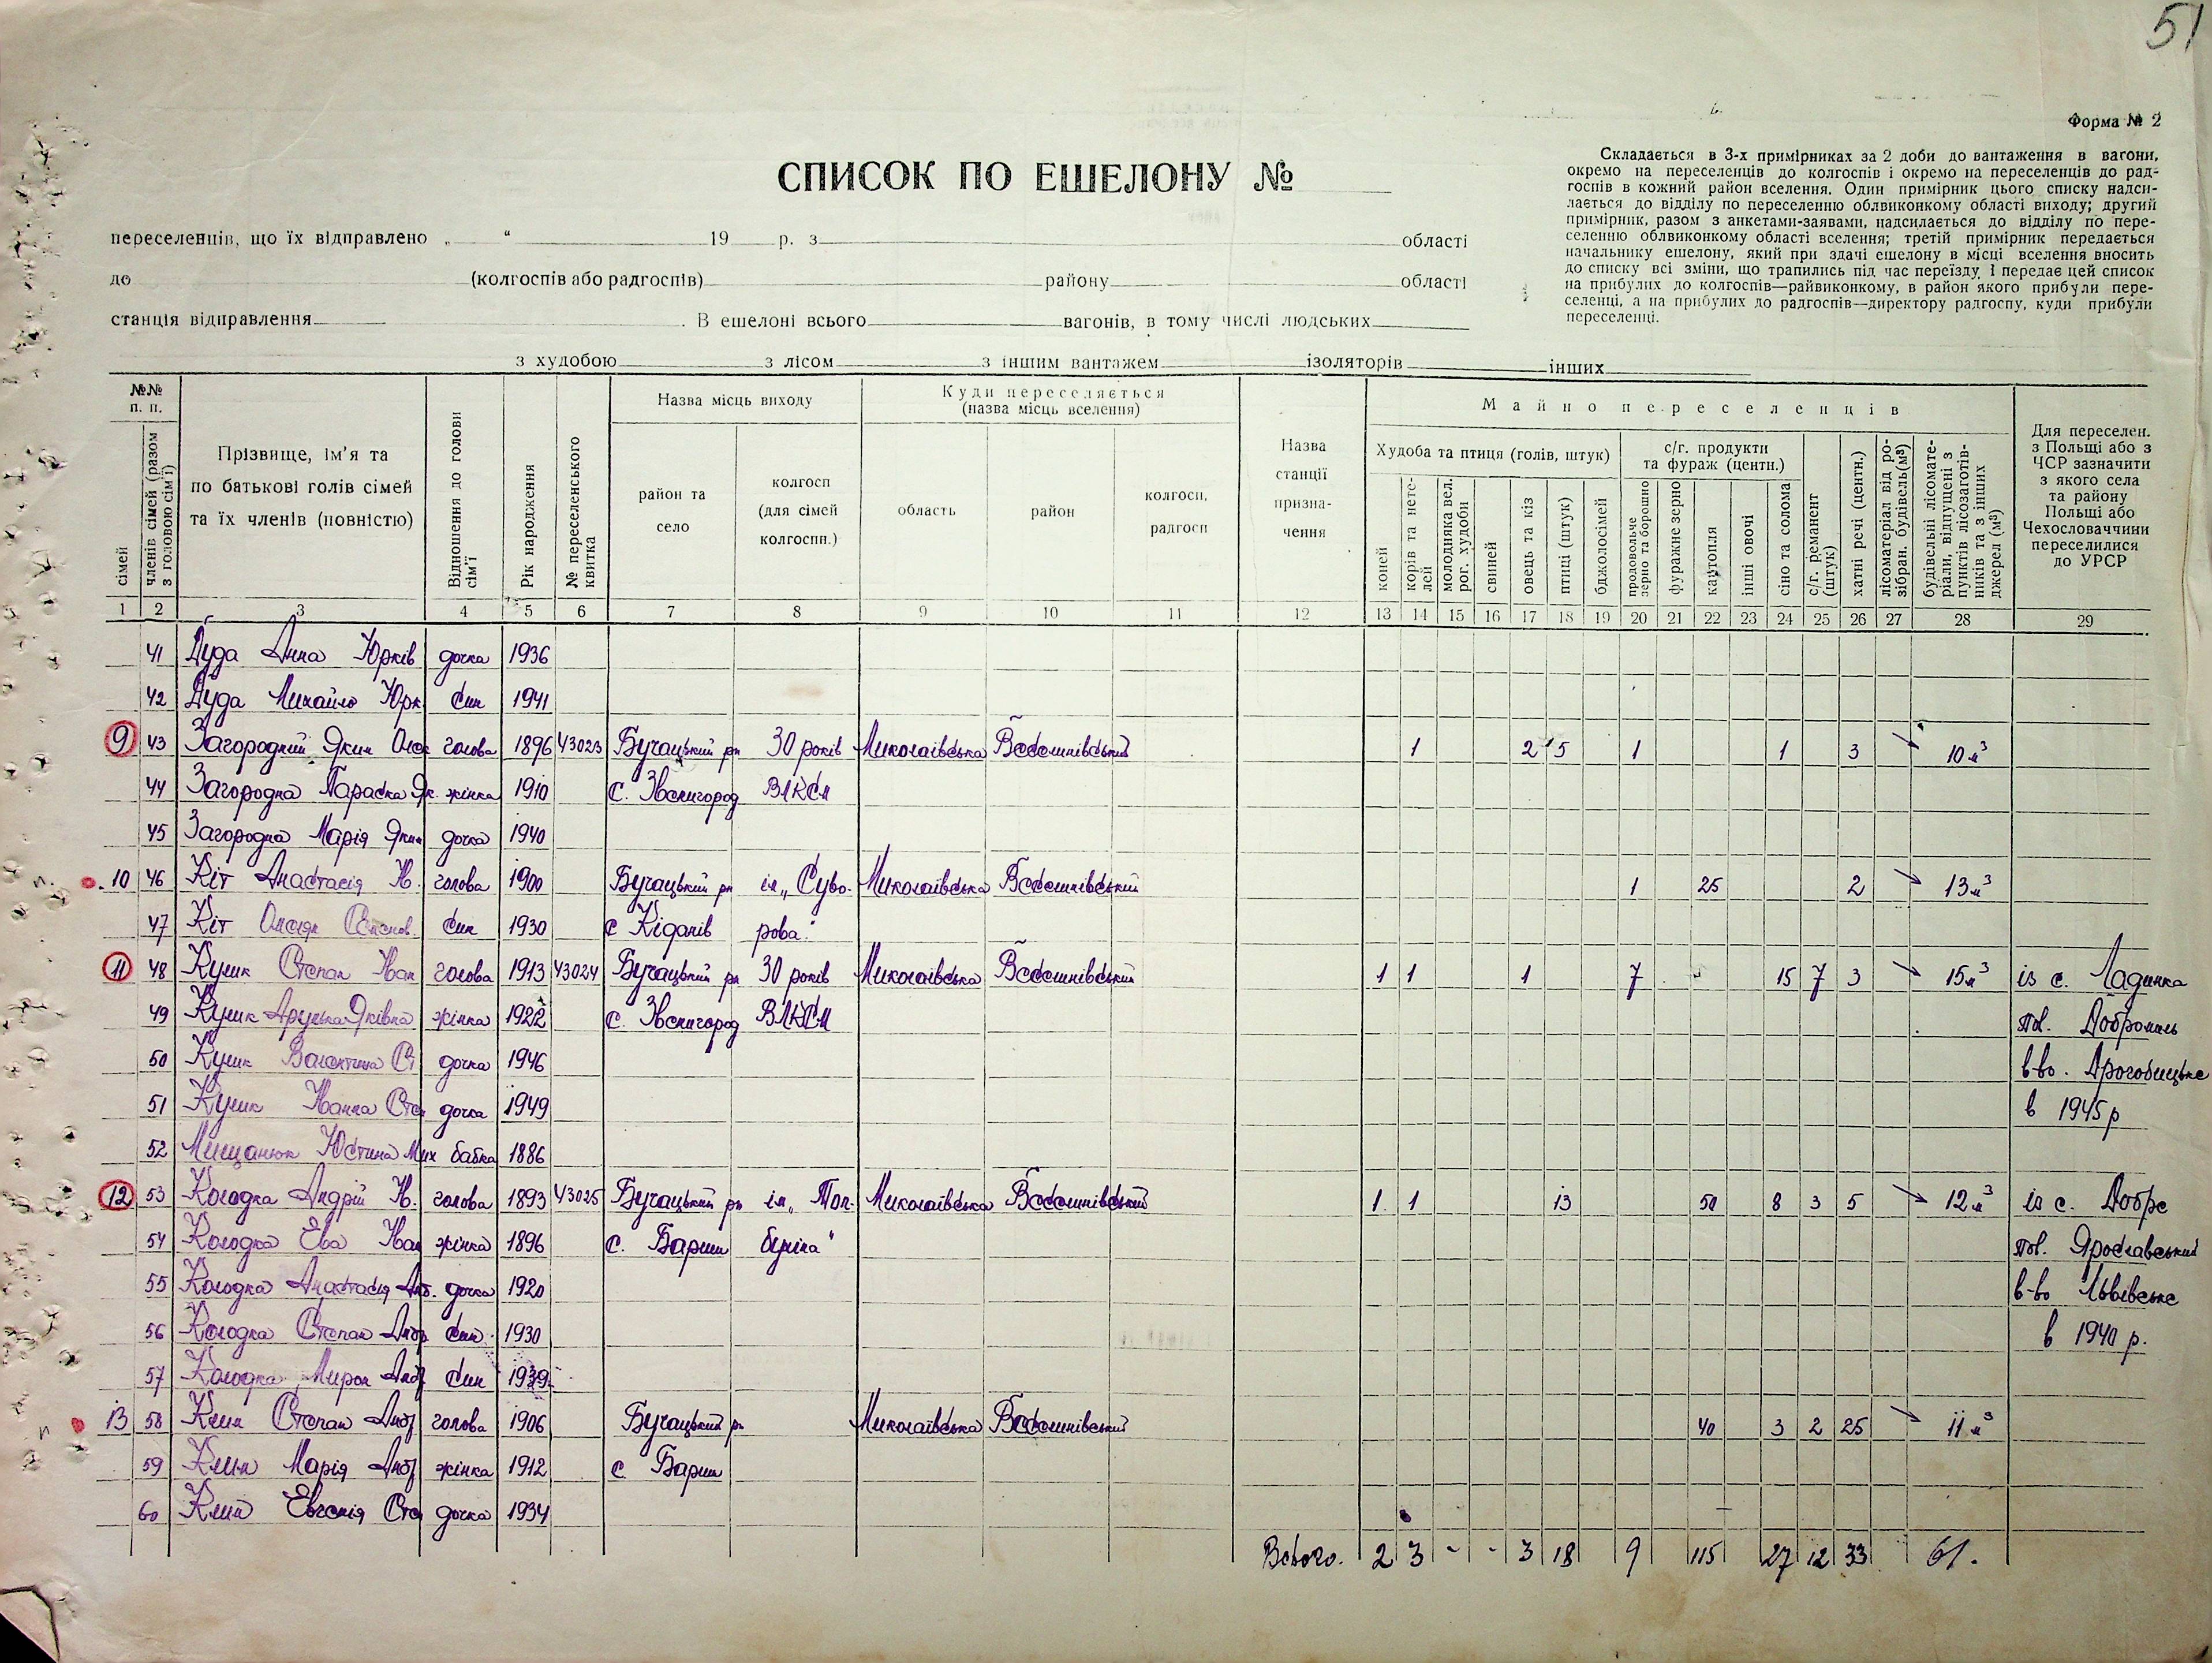 51
Форма № 2
СПИСОК ПО ЕШЕЛОНУ №
Складається в 3-х примірниках за 2 доби до вантаження в вагони,
окремо на переселенців до колгоспів і окремо на переселенців до рад-
госпів в кожний район вселення. Один примірник цього списку надси-
лається до відділу по переселенню облвиконкому області виходу; другий
примірник, разом з анкетами-заявами, надсилається до відділу по пере-
селенню облвиконкому області вселення; третій примірник передається
начальнику ешелону, який при здачі ешелону в місці вселення вносить
до списку всі зміни, що трапились під час переїзду, і передає цей список
на прибулих до колгоспів—райвиконкому, в район якого прибули пере-
селенці, а на прибулих до радгоспів—директору радгоспу, куди прибули
переселенці.
переселенців, що їх відправлено „ “ 19 р. з області
до (колгоспів або радгоспів) району області
станція відправлення . В ешелоні всього вагонів, в тому числі людських
з худобою з лісом з іншим вантажем ізоляторів інших
№№ п. п.
сімей
членів сімей (разом з головою сім'ї)
Прізвище, ім'я та по батькові голів сімей та їх членів (повністю)
Відношення до голови сім'ї
Рік народження
№ переселенського квитка
Назва місць виходу
район та село
колгосп (для сімей колгоспн.)
Куди переселяється (назва місць вселення)
область
район
колгосп, радгосп
Назва станції призна-чення
Майно переселенців
Худоба та птиця (голів, штук)
коней
корів та нете-лей
молодняка вел. рог. худоби
свиней
овець та кіз
птиці (штук)
бджолосімей
с/г. продукти та фураж (центн.)
продовольче зерно та борошно
фуражне зерно
картопля
інші овочі
сіно та солома
с/г. реманент (штук)
хатні речі (центн.)
лісоматеріал від ро-зібран. будівель (м³)
будівельні лісомате-ріали, відпущені з пунктів лісозаготів-ників та з інших джерел (м³)
Для переселен. з Польщі або з ЧСР зазначити з якого села та району Польщі або Чехословаччини переселилися до УРСР
1 2 3 4 5 6 7 8 9 10 11 12 13 14 15 16 17 18 19 20 21 22 23 24 25 26 27 28 29
41 Дуда Анна Юрків дочка 1936
42 Дуда Михайло Юрк син 1941
9 43 Загородний Яким Олек голова 1896 43023 Бучацький рн 30 років Миколаївська 1 2 5 1 1 3 10 м³
44 Загородна Параска Як. жінка 1910 с. Звенигород ВЛКСМ
45 Загородна Марія Яким дочка 1940
10 46 Кіт Анастасія Н. голова 1900 Бучацький рн ім „Суво- Миколаївська 1 25 2 13 м³
47 Кіт син 1930 с Кіданів рова"
11 48 Кулик Степан Іван голова 1913 43024 Бучацький рн 30 років Миколаївська 1 1 1 7 15 7 3 15 м³ із с.
49 Кулик Яківна жінка 1922 с. Звенигород ВЛКСМ пов. Доброміль
50 Кулик Валентина Ст дочка 1946 в-во. Дрогобицьке
51 Кулик Іванна Сте дочка 1949 в 1945 р
52 Мищанюк Юстина Мих бабка 1886
12 53 Колодка Андрій Н. голова 1893 43025 Бучацький рн ім „Топ- Миколаївська 1 1 13 50 8 3 5 12 м³ із с. Добре
54 Колодка Ева Іван жінка 1896 с. Бариш пов. Ярославський
55 Колодка Анастасія Анд. дочка 1920 в-во Львівське
56 Колодка Степан Андр син 1930 в 1940 р.
57 Колодка Мирон Андр син 1939
13 58 Степан Андр голова 1906 Бучацький рн Миколаївська 40 3 2 25 11 м³
59 Марія Андр жінка 1912 с Бариш
60 Евгенія Сте дочка 1934
Всього. 2 3 - - 3 18 9 115 27 12 33 61.